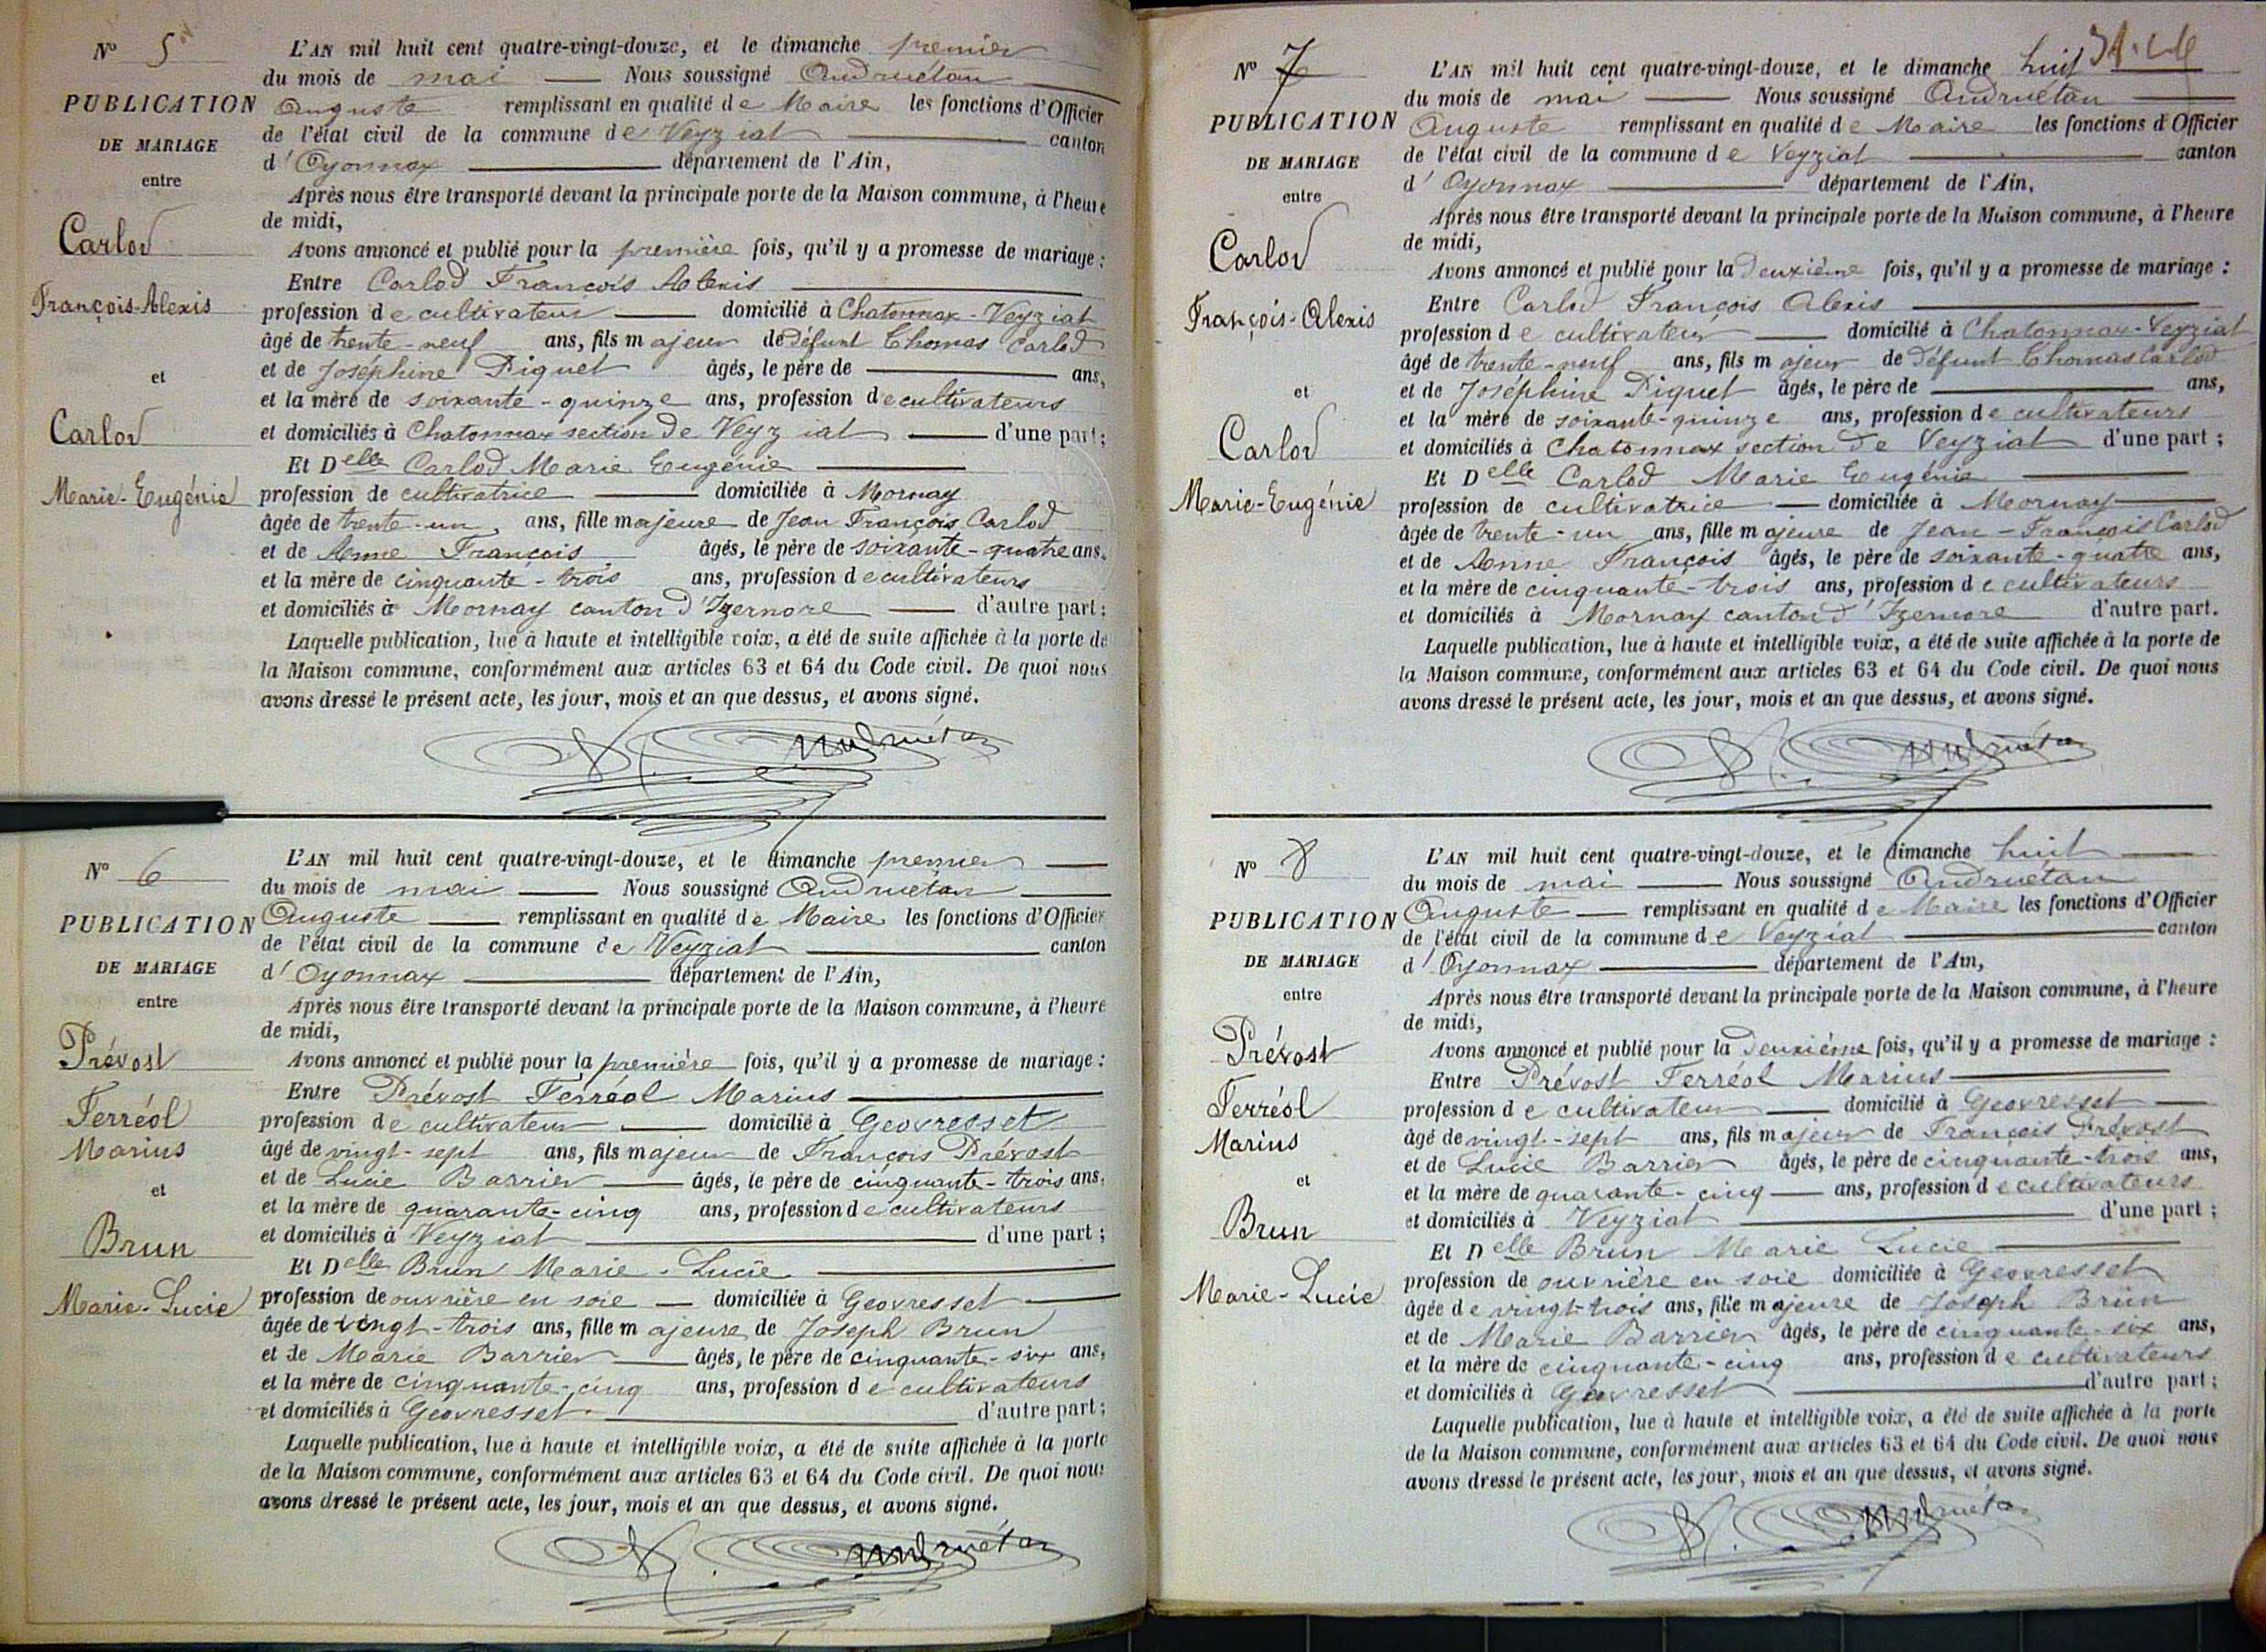 N° 5
PUBLICATION
DE MARIAGE
entre
Carlod
François-Alexis
et
Carlod
Marie-Eugénie
L'AN mil huit cent quatre-vingt-douze, et le dimanche premier
du mois de mai — Nous soussigné Andruétan
Auguste remplissant en qualité de Maire les fonctions d'Officier
de l'état civil de la commune de Veyziat — canton
d'Oyonnax — département de l'Ain,
Après nous être transporté devant la principale porte de la Maison commune, à l'heure
de midi,
Avons annoncé et publié pour la première fois, qu'il y a promesse de mariage :
Entre Carlod François Alexis —
profession de cultivateur — domicilié à Chatonnax-Veyziat
âgé de trente-neuf ans, fils majeur de défunt Thomas Carlod
et de Joséphine Piquet âgés, le père de — ans,
et la mère de soixante-quinze ans, profession de cultivateurs
et domiciliés à Chatonnax section de Veyziat — d'une part ;
Et Delle Carlod Marie Eugénie —
profession de cultivatrice — domiciliée à Mornay
âgée de trente-un ans, fille majeure de Jean François Carlod
et de Anne François âgés, le père de soixante-quatre ans,
et la mère de cinquante-trois ans, profession de cultivateurs
et domiciliés à Mornay canton d'Izernore — d'autre part ;
Laquelle publication, lue à haute et intelligible voix, a été de suite affichée à la porte de
la Maison commune, conformément aux articles 63 et 64 du Code civil. De quoi nous
avons dressé le présent acte, les jour, mois et an que dessus, et avons signé.
Andruétan
N° 6
PUBLICATION
DE MARIAGE
entre
Prévost
Ferréol
Marius
et
Brun
Marie-Lucie
L'AN mil huit cent quatre-vingt-douze, et le dimanche premier —
du mois de mai — Nous soussigné Andruétan —
Auguste — remplissant en qualité de Maire les fonctions d'Officier
de l'état civil de la commune de Veyziat — canton
d'Oyonnax — département de l'Ain,
Après nous être transporté devant la principale porte de la Maison commune, à l'heure
de midi,
Avons annoncé et publié pour la première fois, qu'il y a promesse de mariage :
Entre Prévost Ferréol Marius —
profession de cultivateur — domicilié à Géovresset
âgé de vingt-sept ans, fils majeur de François Prévost
et de Lucie Barrier — âgés, le père de cinquante-trois ans,
et la mère de quarante-cinq ans, profession de cultivateurs
et domiciliés à Veyziat — d'une part ;
Et Delle Brun Marie-Lucie —
profession de ouvrière en soie — domiciliée à Géovresset —
âgée de vingt-trois ans, fille majeure de Joseph Brun
et de Marie Barrier — âgés, le père de cinquante-six ans,
et la mère de cinquante-cinq ans, profession de cultivateurs
et domiciliés à Géovresset — d'autre part ;
Laquelle publication, lue à haute et intelligible voix, a été de suite affichée à la porte
de la Maison commune, conformément aux articles 63 et 64 du Code civil. De quoi nous
avons dressé le présent acte, les jour, mois et an que dessus, et avons signé.
Andruétan
N° 7
PUBLICATION
DE MARIAGE
entre
Carlod
François-Alexis
et
Carlod
Marie-Eugénie
L'AN mil huit cent quatre-vingt-douze, et le dimanche huit
du mois de mai — Nous soussigné Andruétan —
Auguste remplissant en qualité de Maire les fonctions d'Officier
de l'état civil de la commune de Veyziat — canton
d'Oyonnax — département de l'Ain,
Après nous être transporté devant la principale porte de la Maison commune, à l'heure
de midi,
Avons annoncé et publié pour la deuxième fois, qu'il y a promesse de mariage :
Entre Carlod François Alexis —
profession de cultivateur — domicilié à Chatonnax-Veyziat
âgé de trente-neuf ans, fils majeur de défunt Thomas Carlod
et de Joséphine Piquet âgés, le père de — ans,
et la mère de soixante-quinze ans, profession de cultivateurs
et domiciliés à Chatonnax section de Veyziat d'une part ;
Et Delle Carlod Marie Eugénie —
profession de cultivatrice — domiciliée à Mornay —
âgée de trente-un ans, fille majeure de Jean-François Carlod
et de Anne François âgés, le père de soixante-quatre ans,
et la mère de cinquante-trois ans, profession de cultivateurs
et domiciliés à Mornay canton d'Izernore d'autre part.
Laquelle publication, lue à haute et intelligible voix, a été de suite affichée à la porte de
la Maison commune, conformément aux articles 63 et 64 du Code civil. De quoi nous
avons dressé le présent acte, les jour, mois et an que dessus, et avons signé.
Andruétan
N° 8
PUBLICATION
DE MARIAGE
entre
Prévost
Ferréol
Marius
et
Brun
Marie-Lucie
L'AN mil huit cent quatre-vingt-douze, et le dimanche huit —
du mois de mai — Nous soussigné Andruétan
Auguste — remplissant en qualité de Maire les fonctions d'Officier
de l'état civil de la commune de Veyziat — canton
d'Oyonnax — département de l'Ain,
Après nous être transporté devant la principale porte de la Maison commune, à l'heure
de midi,
Avons annoncé et publié pour la deuxième fois, qu'il y a promesse de mariage :
Entre Prévost Ferréol Marius —
profession de cultivateur — domicilié à Géovresset —
âgé de vingt-sept ans, fils majeur de François Prévost
et de Lucie Barrier âgés, le père de cinquante-trois ans,
et la mère de quarante-cinq — ans, profession de cultivateurs
et domiciliés à Veyziat — d'une part ;
Et Delle Brun Marie Lucie —
profession de ouvrière en soie domiciliée à Géovresset
âgée de vingt-trois ans, fille majeure de Joseph Brun
et de Marie Barrier âgés, le père de cinquante-six ans,
et la mère de cinquante-cinq ans, profession de cultivateurs
et domiciliés à Géovresset — d'autre part ;
Laquelle publication, lue à haute et intelligible voix, a été de suite affichée à la porte
de la Maison commune, conformément aux articles 63 et 64 du Code civil. De quoi nous
avons dressé le présent acte, les jour, mois et an que dessus, et avons signé.
Andruétan